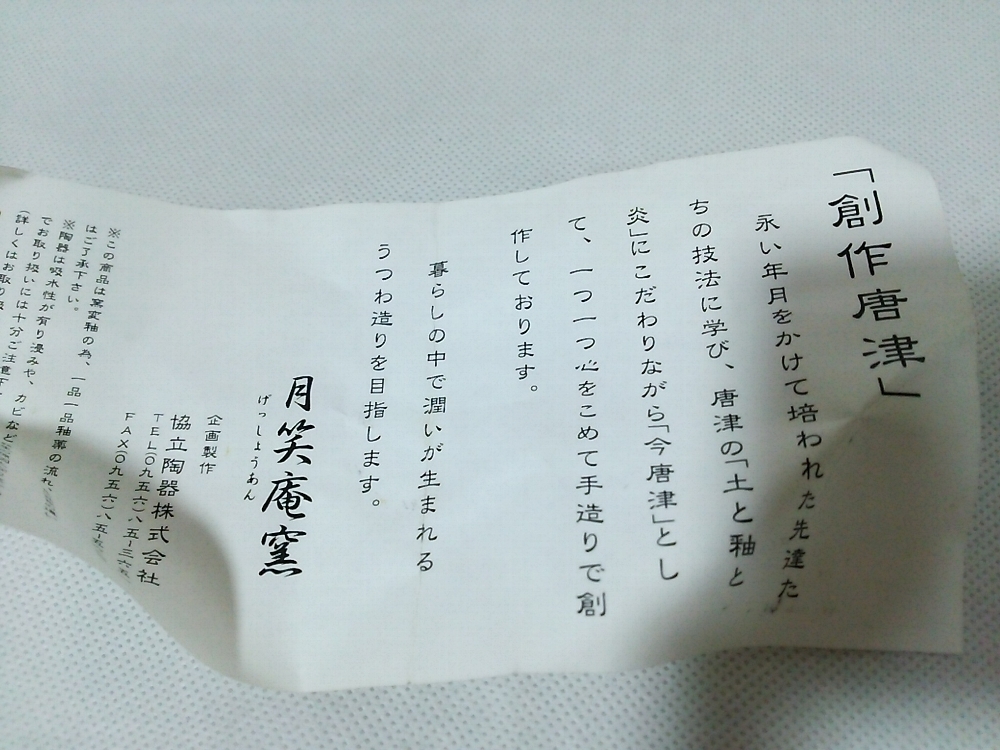 「創作唐津」
永い年月をかけて培われた先達た
ちの技法に学び、唐津の「土と釉と
炎」にこだわりながら「今唐津」とし
て、一つ一つ心をこめて手造りで創
作しております。
暮らしの中で潤いが生まれる
うつわ造りを目指します。
月笑庵窯
げっしょうあん
企画製作
協立陶器株式会社
TEL(〇九五六)八五-三六
FAX(〇九五六)八五-
※この商品は窯変釉の為、一品一品釉薬の流れ
はご了承下さい。
※陶器は吸水性が有り浸みや、カビなど
でお取り扱いには十分ご注意下
(詳しくはお取り扱